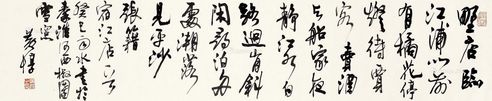 野店臨
江浦門前
有橘花停
燈待賈
客賣酒
與船家夜
静江水白
路迴山月斜
閑尋泊舟
處潮落
見平沙
張籍
宿江店
癸巳雨水書於
秦淮河西
黄惇